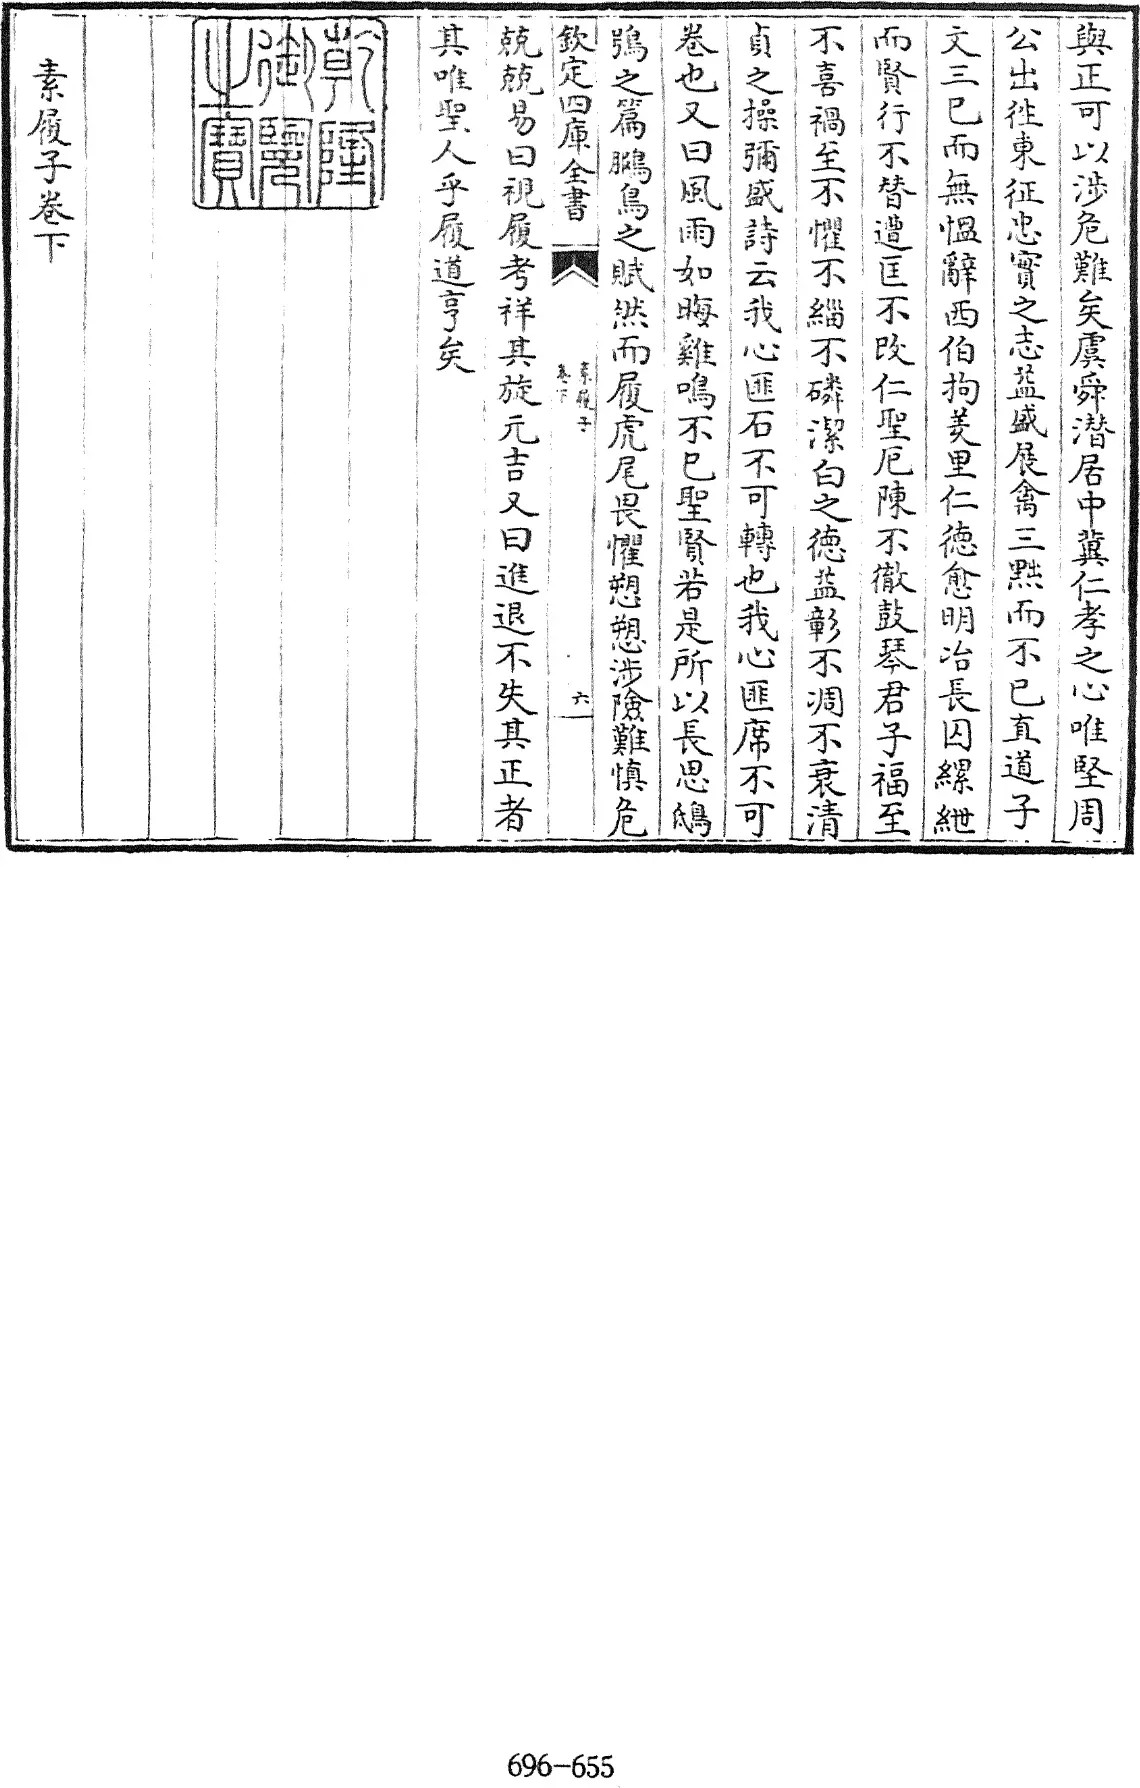 與正可以涉危難矣虞舜潛居中冀仁孝之心唯堅周
公出徃東征忠實之志葢盛展禽三黜而不已直道子
文三已而無愠辭西伯拘羑里仁德愈明冶長囚縲紲
而賢行不替遭匡不改仁聖厄陳不徹鼓琴君子福至
不喜禍至不懼不緇不磷潔白之德葢彰不凋不衰清
貞之操彌盛詩云我心匪石不可轉也我心匪席不可
卷也又曰風雨如晦雞鳴不已聖賢若是所以長思鴟
鴞之篇鵩鳥之賦然而履虎尾畏懼愬愬涉險難慎危
欽定四庫全書
素履子
卷下
六
兢兢易曰視履考祥其旋元吉又曰進退不失其正者
其唯聖人乎履道亨矣
乾隆御覽之寶
素履子卷下
696-655